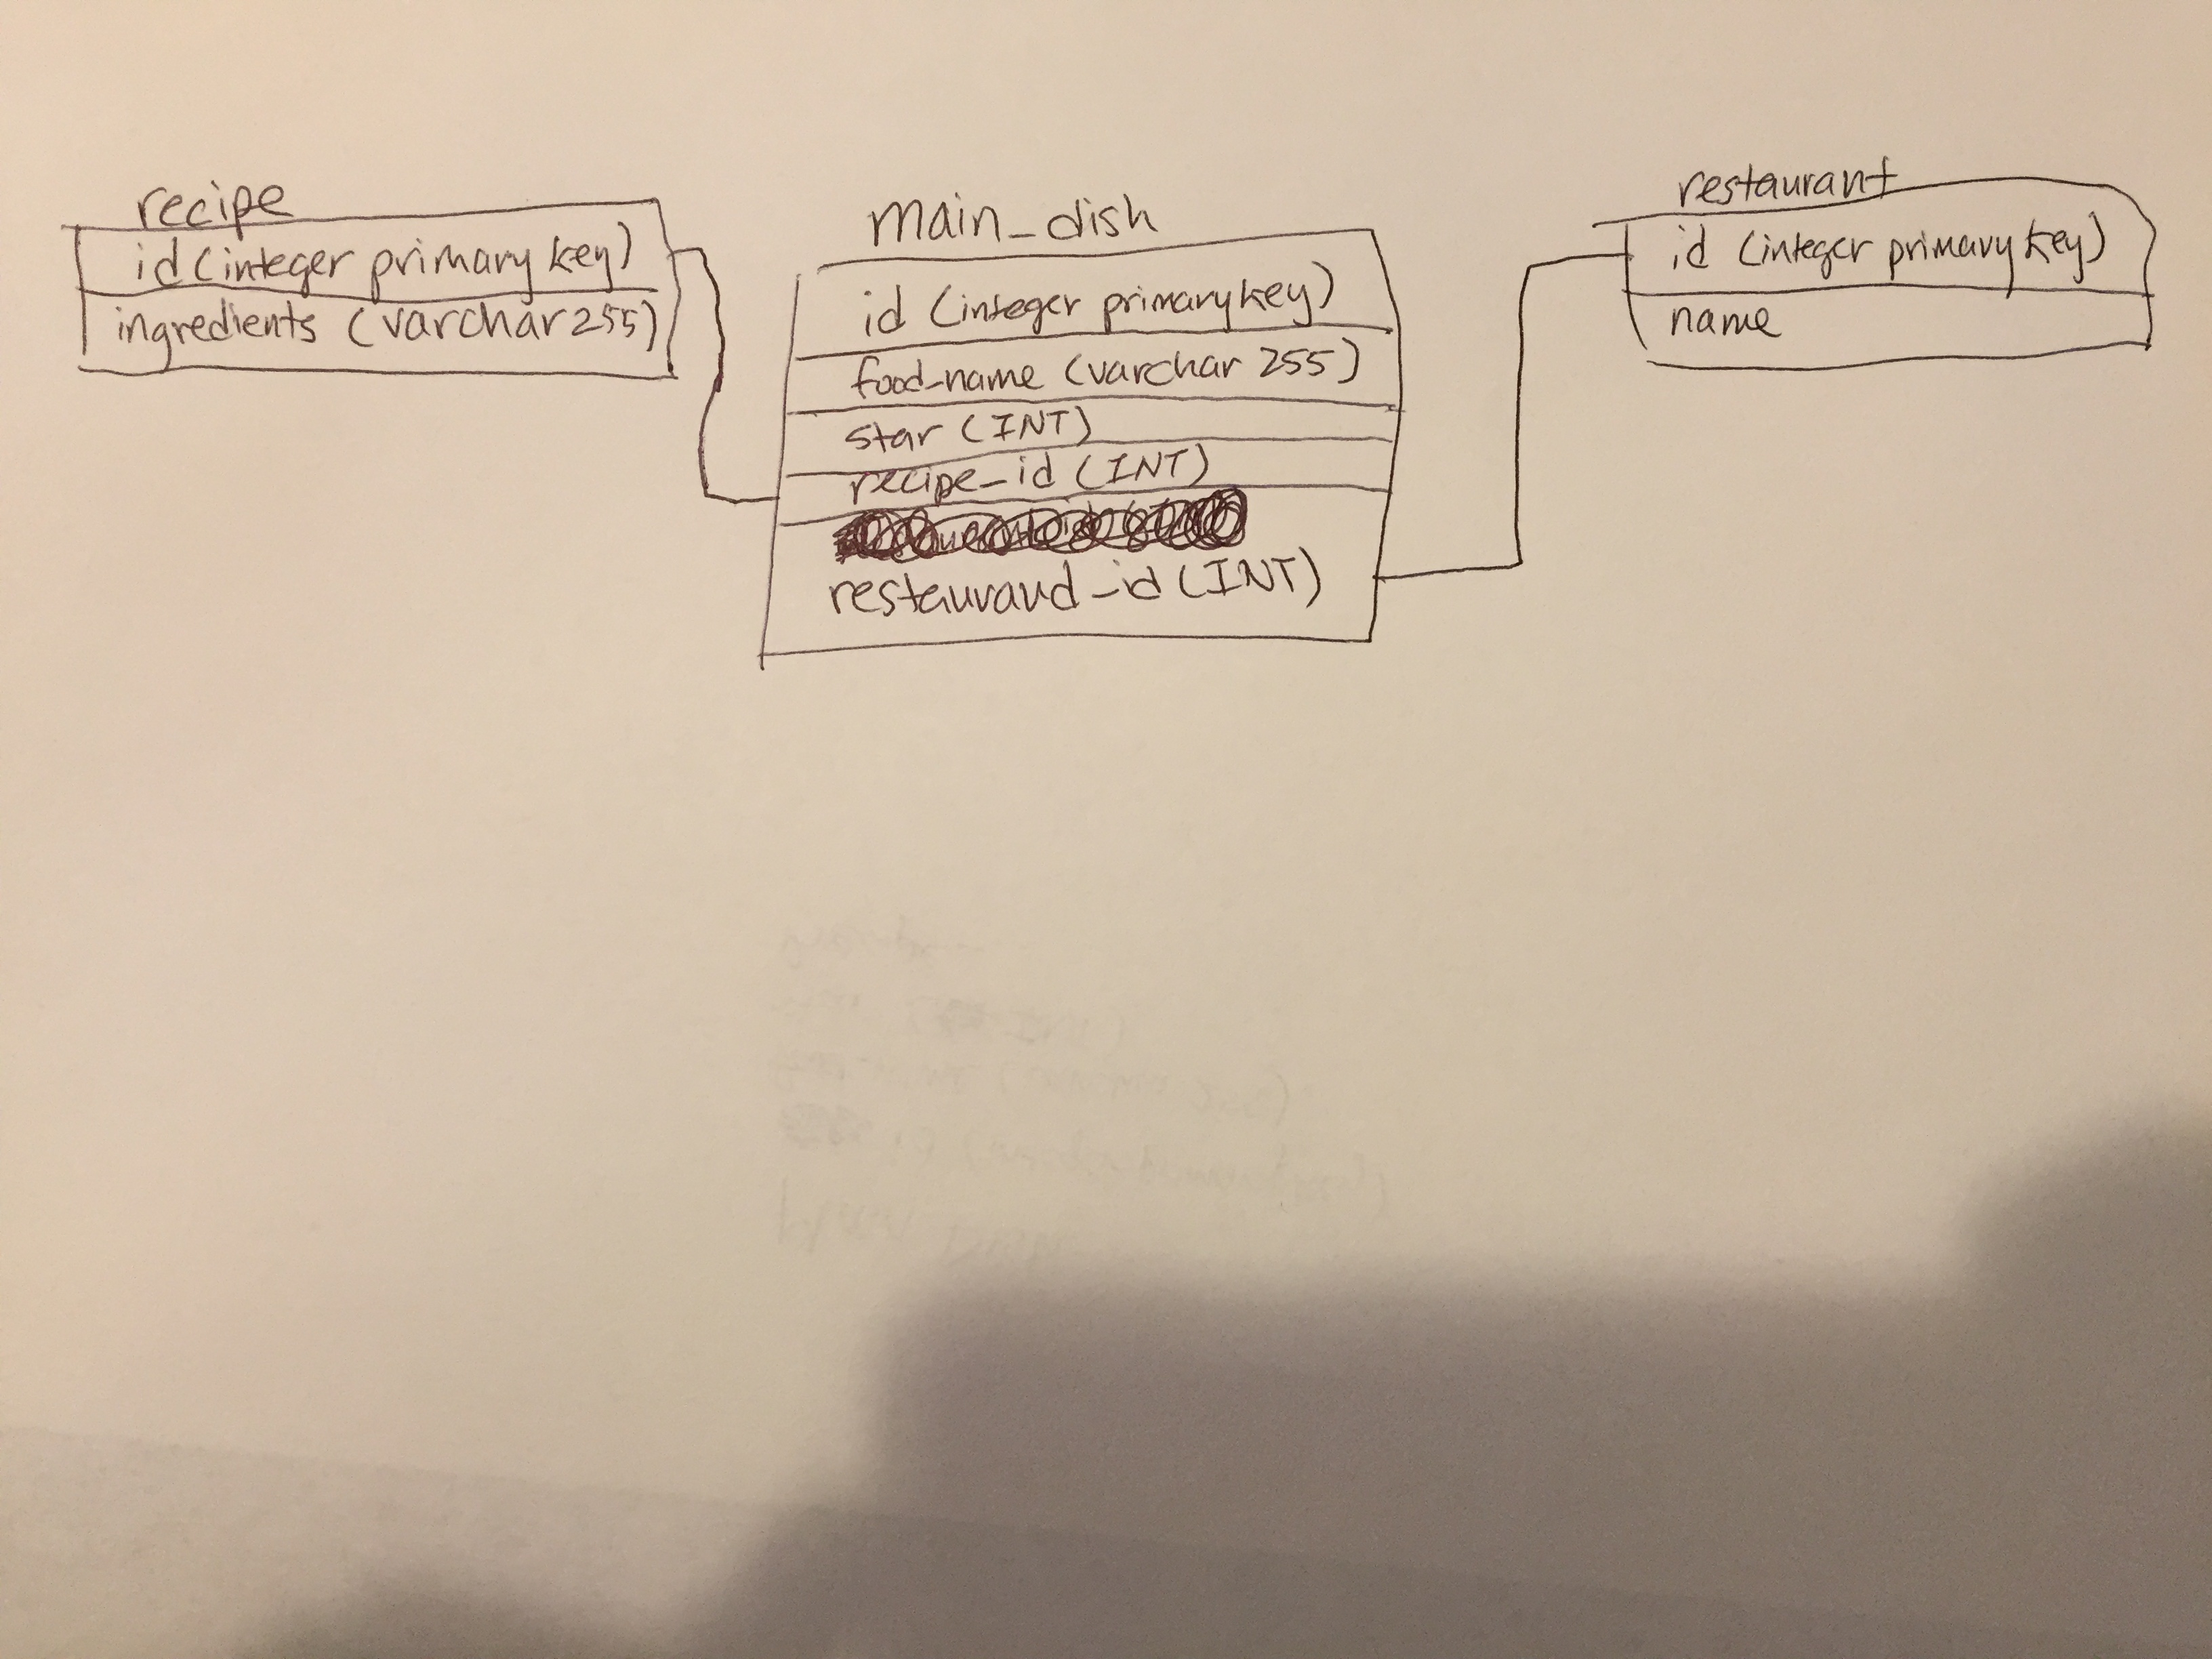 recipe
id (integer primary key)
ingredients (varchar 255)
main_dish
id (integer primary key)
food_name (varchar 255)
star (INT)
recipe_id (INT)
restaurand_id (INT)
restaurant
id (integer primary key)
name